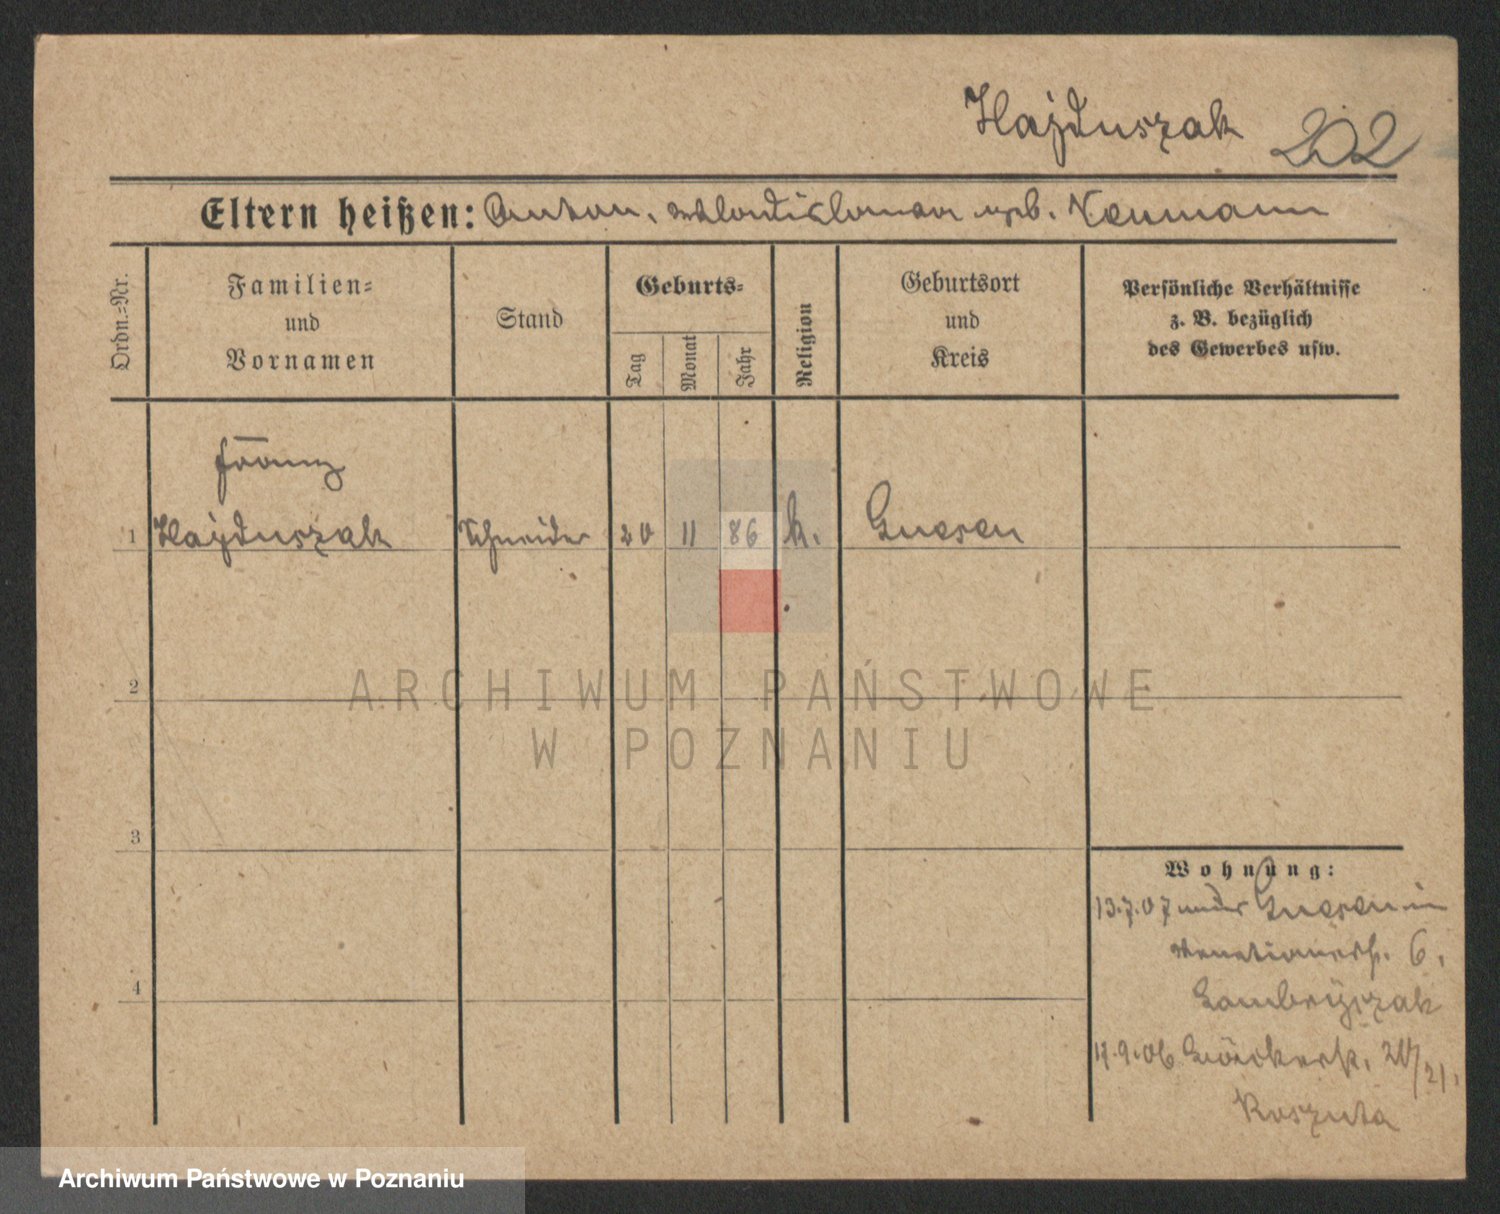 Hajduszak 202
Eltern heißen: Anton, Wladislawa geb. Neumann
Ordn.-Nr.
Familien-
und
Vornamen
Stand
Geburts-
Tag
Monat
Jahr
Religion
Geburtsort
und
Kreis
Persönliche Verhältnisse
z. B. bezüglich
des Gewerbes usw.
Franz
1 Hajduszak Schneider 20 11 86 k. Gnesen
2
ARCHIWUM PAŃSTWOWE
W POZNANIU
3
Wohnung:
13.7.07 Gnesen in
6.
4
17.9.06 20/21.
Koszuta
Archiwum Państwowe w Poznaniu